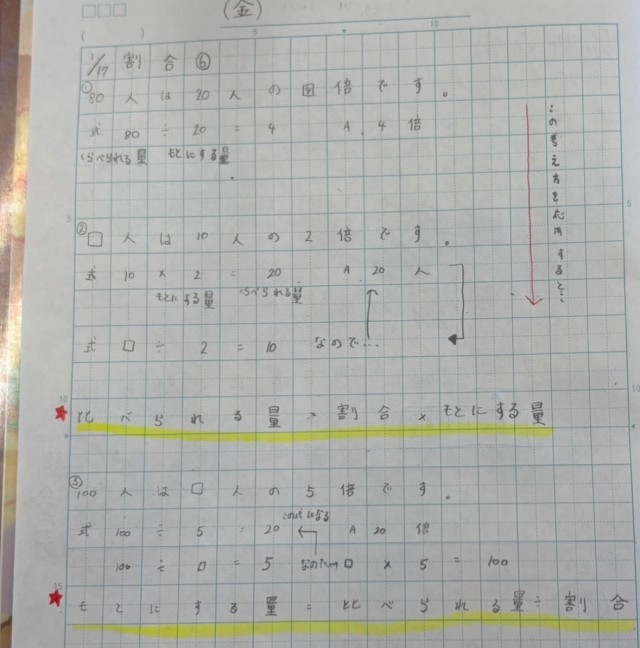 (金)
( )
5
10
1/17 割合⑥
①80人は20人の□倍です。
式 80÷20=4 A 4倍
くらべられる量 もとにする量
このきえ方を応用すると…
5
5
②□人は10人の2倍です。
式 10×2=20 A 20人
もとにする量 くらべられる量
式 □÷2=10 なので…
10
10
★比べられる量=割合×もとにする量
③100人は□人の5倍です。
式 100÷5=20 A 20倍
100÷□=5 なので □×5=100
15
★もとにする量=比べられる量÷割合